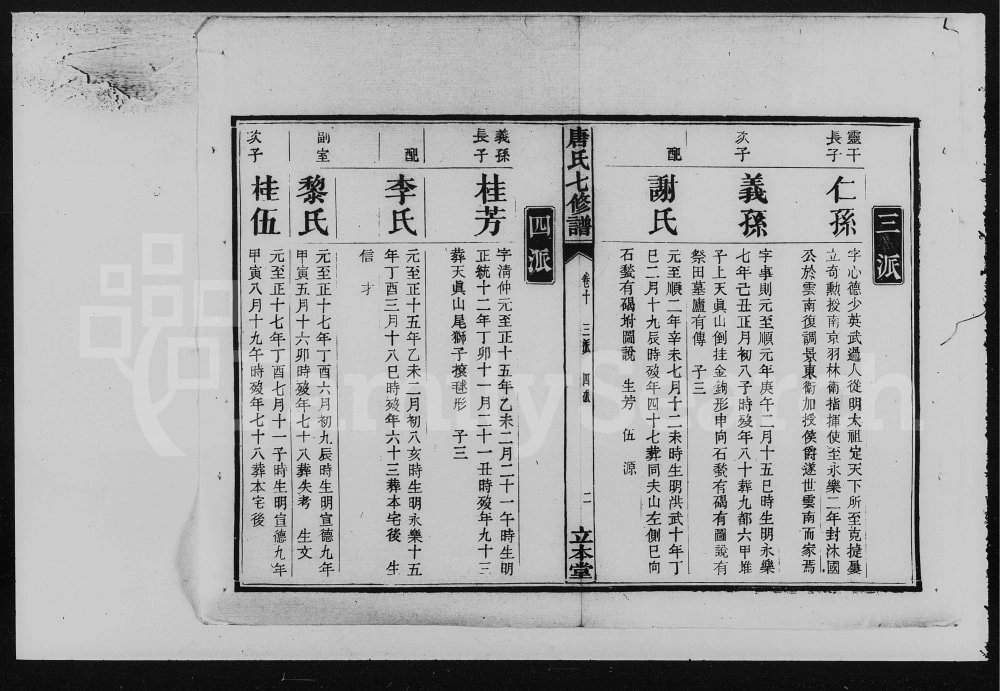 三派
靈干
長子
仁孫
字心德少英武過人從明太祖定天下所至克捷屢
立奇勲授南京羽林衛指揮使至永樂二年封沐國
公於雲南復調景東衛加授侯爵遂世雲南而家焉
次子
義孫
字事則元至順元年庚午二月十五巳時生明永樂
七年己丑正月初八子時歿年八十葬九都六甲堆
子上天眞山倒挂金鉤形申向石甃有碣有圖說有
祭田墓廬有傳 子三
配
謝氏
元至順二年辛未七月十二未時生明洪武十年丁
巳二月十九辰時歿年四十七葬同夫山左側巳向
石甃有碣坿圖說 生芳 伍 源
唐氏七修譜
卷十 三派 四派
二
立本堂
四派
義孫
長子
桂芳
字淸仲元至正十五年乙未二月二十一午時生明
正統十二年丁卯十一月二十一丑時歿年九十三
葬天眞山尾獅子滾毬形 子三
配
李氏
元至正十五年乙未二月初八亥時生明永樂十五
年丁酉三月十八巳時歿年六十三葬本宅後 生
信 才
副室
黎氏
元至正十七年丁酉六月初九辰時生明宣德九年
甲寅五月十六卯時歿年七十八葬失考 生文
次子
桂伍
元至正十七年丁酉七月十一子時生明宣德九年
甲寅八月十九午時歿年七十八葬本宅後
FamilySearch